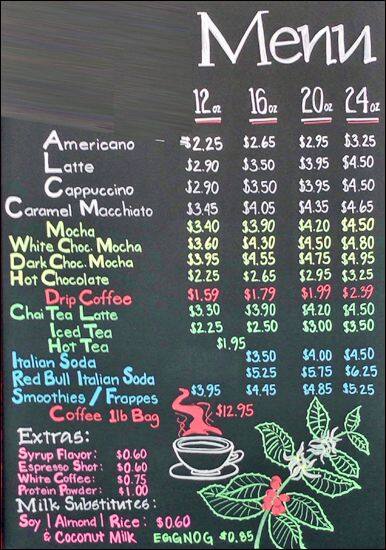 Menu
12oz 16oz 20oz 24oz
Americano $2.25 $2.65 $2.95 $3.25
Latte $2.90 $3.50 $3.95 $4.50
Cappuccino $2.90 $3.50 $3.95 $4.50
Caramel Macchiato $3.45 $4.05 $4.35 $4.65
Mocha $3.40 $3.90 $4.20 $4.50
White Choc. Mocha $3.60 $4.30 $4.50 $4.80
Dark Choc. Mocha $3.95 $4.55 $4.75 $4.95
Hot Chocolate $2.25 $2.65 $2.95 $3.25
Drip Coffee $1.59 $1.79 $1.99 $2.39
Chai Tea Latte $3.30 $3.90 $4.20 $4.50
Iced Tea $2.25 $2.50 $3.00 $3.50
Hot Tea $1.95
Italian Soda $3.50 $4.00 $4.50
Red Bull Italian Soda $5.25 $5.75 $6.25
Smoothies / Frappes $3.95 $4.45 $4.85 $5.25
Coffee 1lb Bag $12.95
Extras:
Syrup Flavor: $0.60
Espresso Shot: $0.60
White Coffee: $0.75
Protein Powder: $1.00
Milk Substitutes:
Soy | Almond | Rice: $0.60
& Coconut Milk EGGNOG $0.85